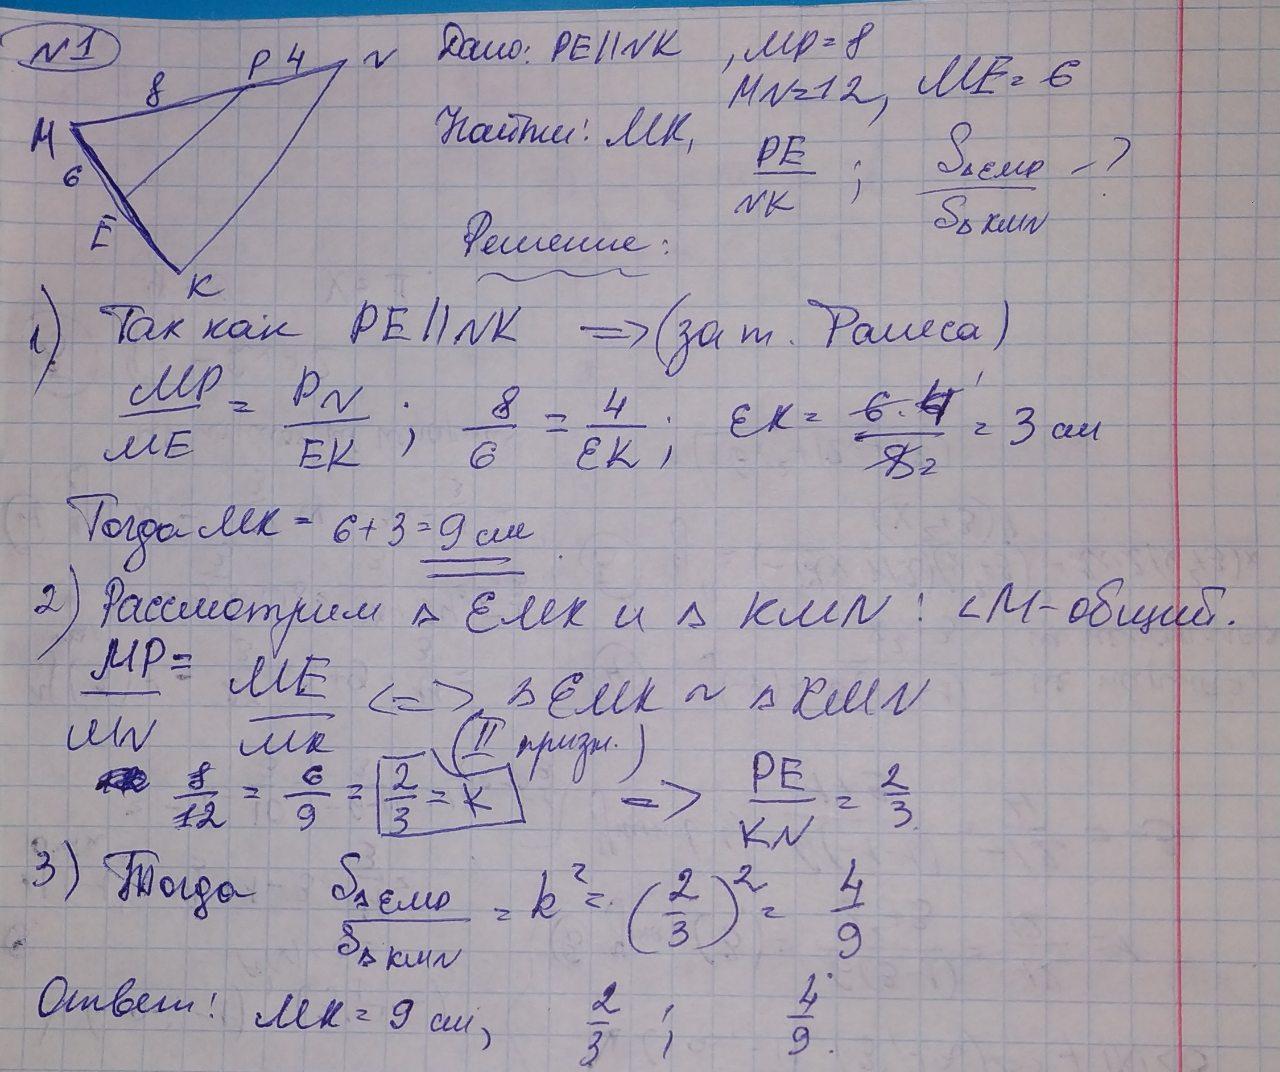 N1
P 4 N
8
M
6
E
K
Дано: PE||NK , MP=8
MN=12, ME=6
Найти: MK, PE/NK ; S△EMP/S△KMN -?
Решение:
1) Так как PE||NK => (за т. Фалеса)
MP/ME = PN/EK ; 8/6 = 4/EK ; EK = 6·4/8 2 = 3 см
Тогда MK = 6+3=9 см
2) Рассмотрим △ EMK и △ KMN : ∠M-общий.
MP/MN = ME/MK <=> △EMK ~ △KMN
(II призн.)
8/12 = 6/9 = 2/3 = K => PE/KN = 2/3
3) Тогда S△EMP/S△KMN = k² = (2/3)² = 4/9
Ответ: MK = 9 см, 2/3 ; 4/9.